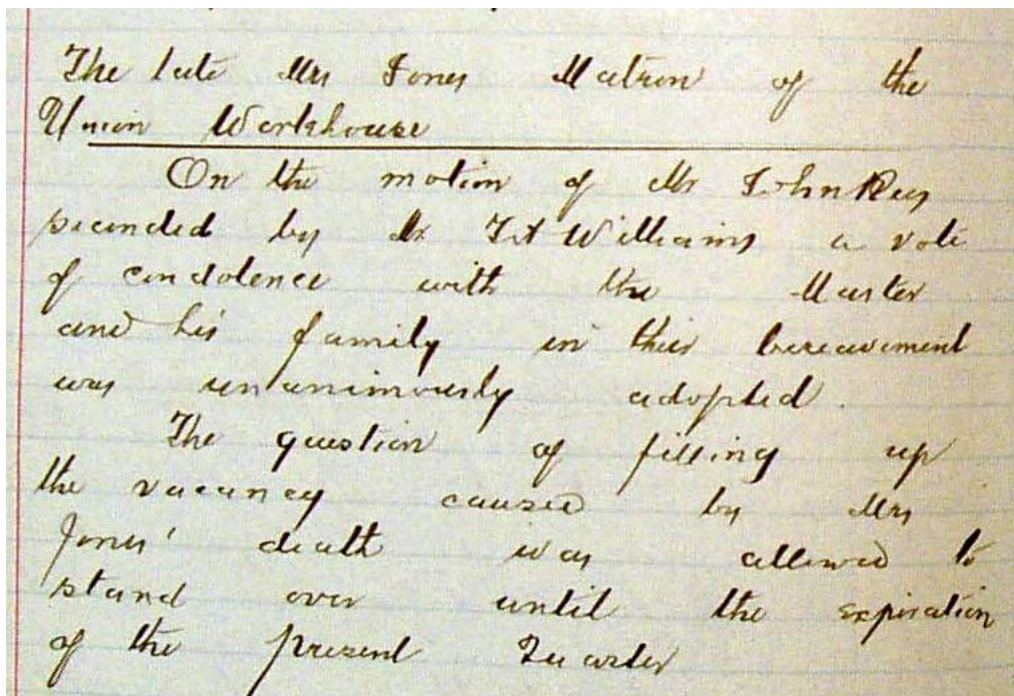 The late Mrs Jones Matron of the
Union Workhouse
On the motion of Mr John Rees
seconded by Mr Williams a vote
of condolence with the Master
and his family in their bereavement
was unanimously adopted.
The question of filling up
the vacancy caused by Mrs
Jones' death was allowed to
stand over until the expiration
of the present Quarter